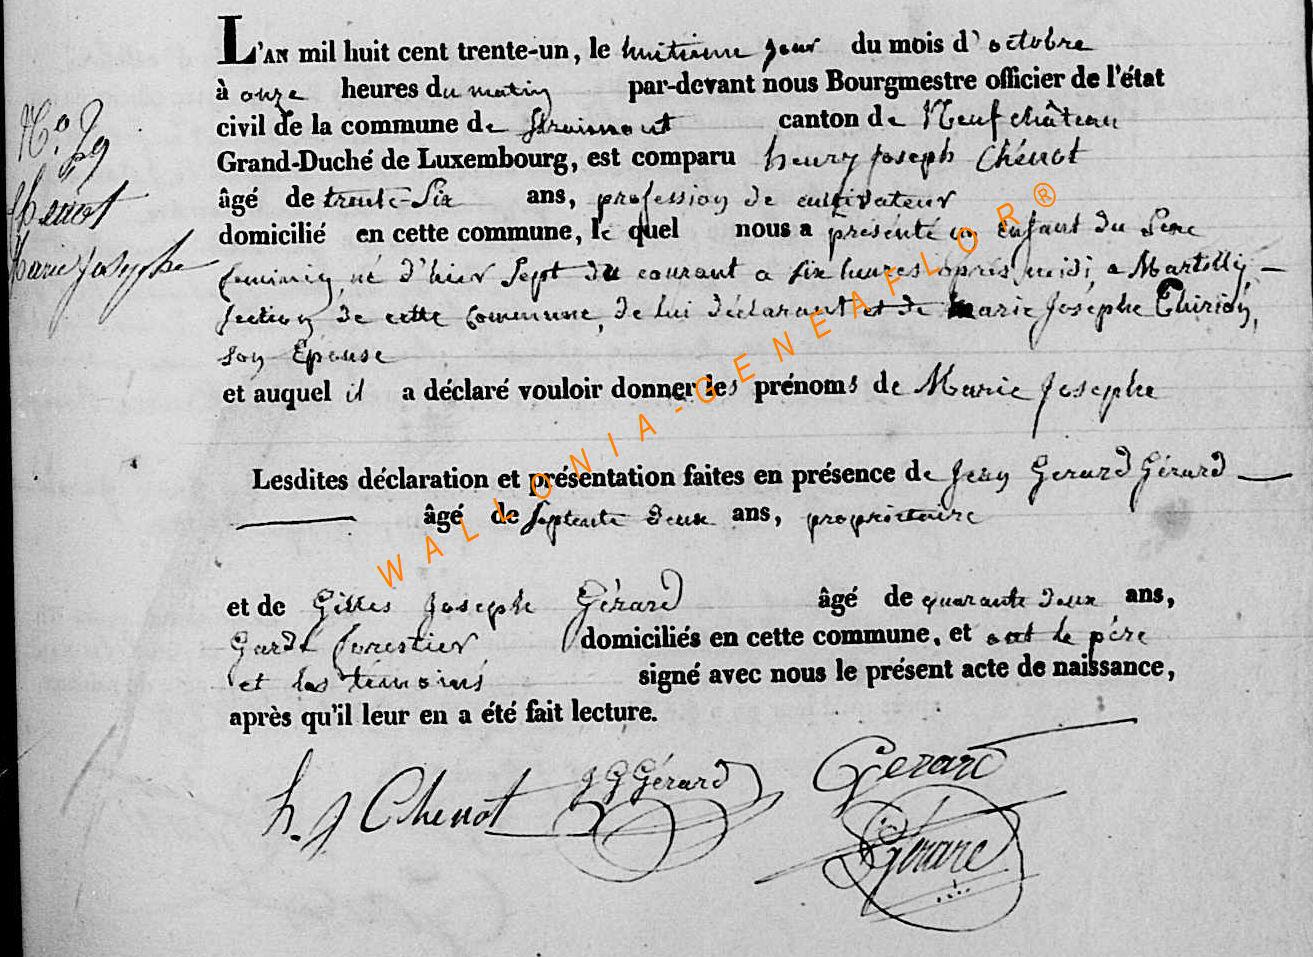 L'AN mil huit cent trente-un, le huitieme jour du mois d'octobre
à onze heures du matin par-devant nous Bourgmestre officier de l'état
civil de la commune de Straimont canton de Neufchâteau
Grand-Duché de Luxembourg, est comparu henry joseph Chénot
âgé de trente-six ans, profession de cultivateur
domicilié en cette commune, le quel nous a présenté un enfant du Sexe
feminin, né d'hier Sept du courant a six heures après midi, a Martilly,
section de cette commune, de lui déclarant et de Marie joséphe Thirion,
son Epouse
et auquel il a déclaré vouloir donner les prénoms de Marie josephe
Lesdites déclaration et présentation faites en présence de jean Gerard Gérard
âgé de septente deux ans, propriétaire
et de Gilles joseph Gérard âgé de quarante deux ans,
Garde forestier domiciliés en cette commune, et ont le père
et les témoins signé avec nous le présent acte de naissance,
après qu'il leur en a été fait lecture.
N.o 29
Chenot
Marie josephe
h. j Chenot
J G Gérard
Gerard
Gérard
WALLONIA-GENEAFLOR®